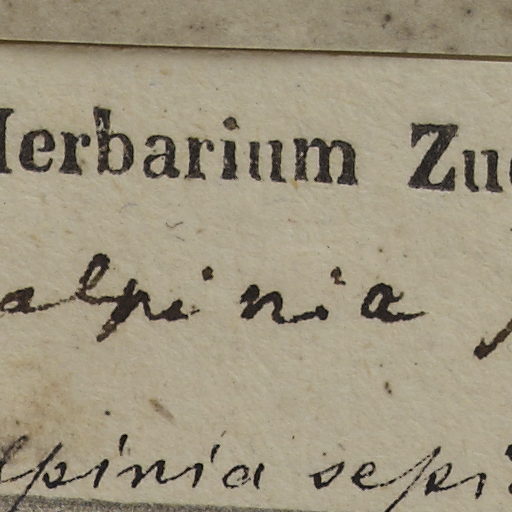 Herbarium Zuc
alpinia
lpinia sepi